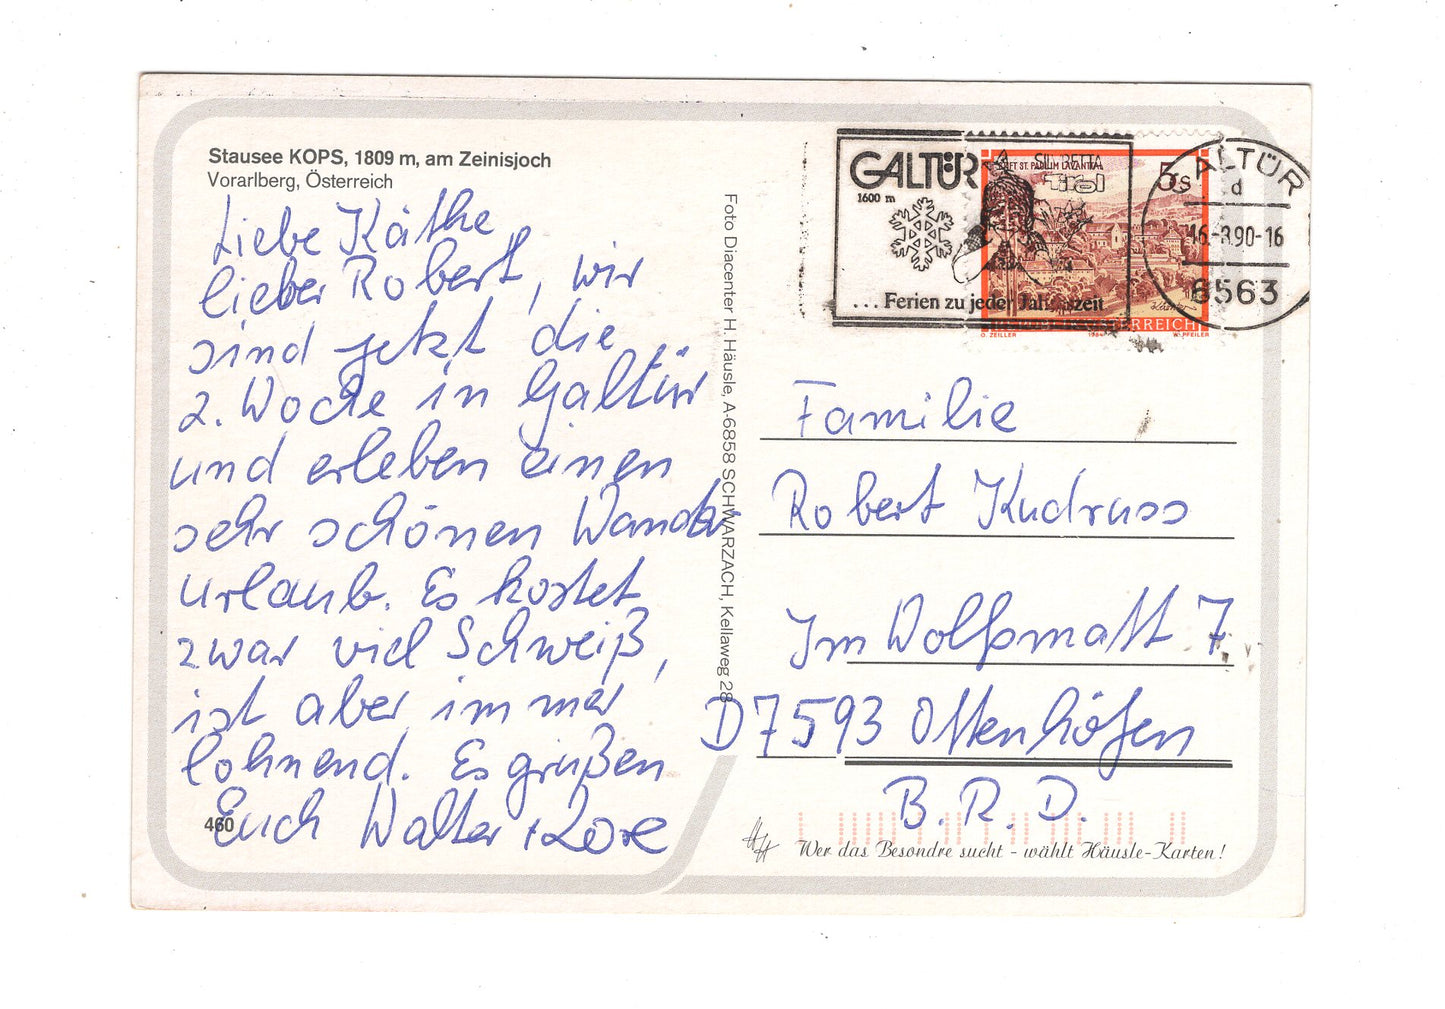 Stausee KOPS, 1809 m, am Zeinisjoch
Vorarlberg, Österreich
Liebe Käthe,
lieber Robert, wir
sind jetzt die
2. Woche in Galtür
und erleben einen
sehr schönen Wander
urlaub. Es kostet
zwar viel Schweiß,
ist aber immer
lohnend. Es grüßen
Euch Walter +
460
Foto Diacenter H. Häusle, A-6858 SCHWARZACH, Kellaweg 28
GALTÜR
1600 m
SILVRETTA
Tirol
... Ferien zu jeder Jahreszeit
STIFT ST. PAUL IM LAVANTTAL
5s
REPUBLIK ÖSTERREICH
O. ZEILLER 1984 W. PFEILER
GALTÜR
d
16.-8.90-16
6563
Familie
Robert Kudruss
Im Wolfsmatt 7
D 7593 Ottenhöfen
B.R.D.
HH
Wer das Besondre sucht - wählt Häusle-Karten!